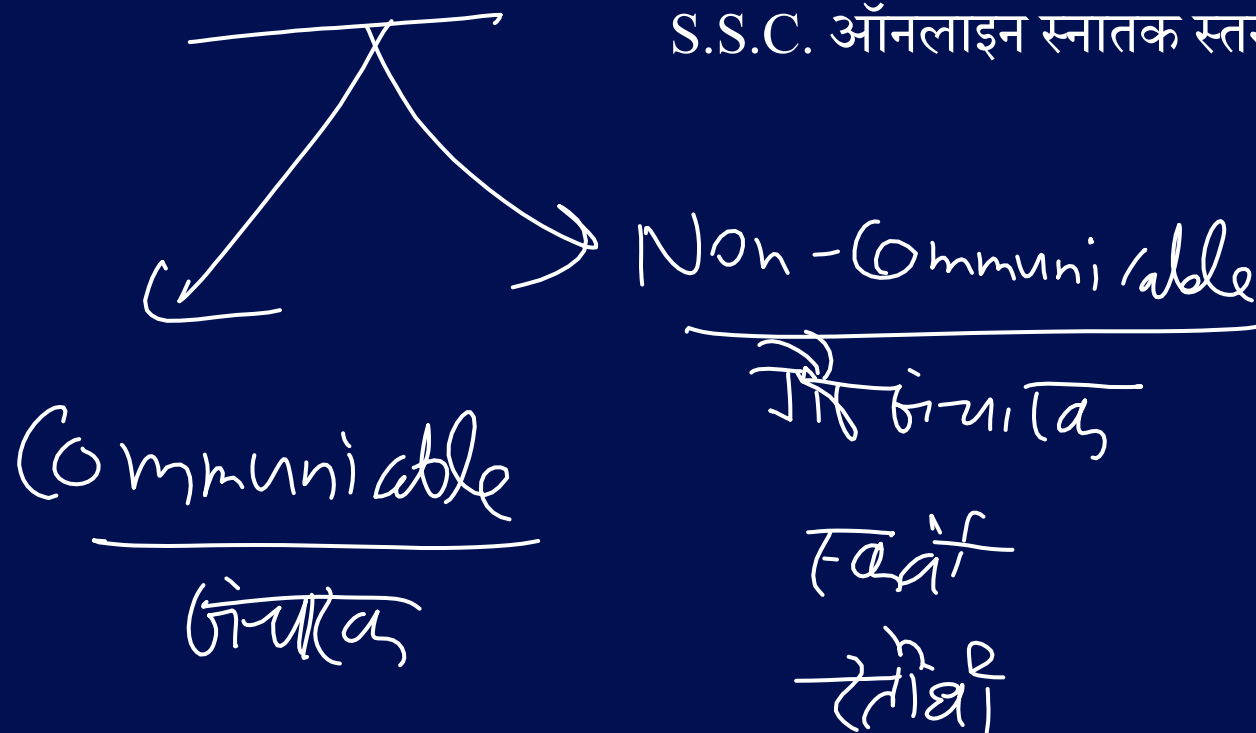 S.S.C. ऑनलाइन स्नातक स्त
Non-Communicable
गैर संचारक
Communicable
संचारक
स्कर्वी
रतौंधी